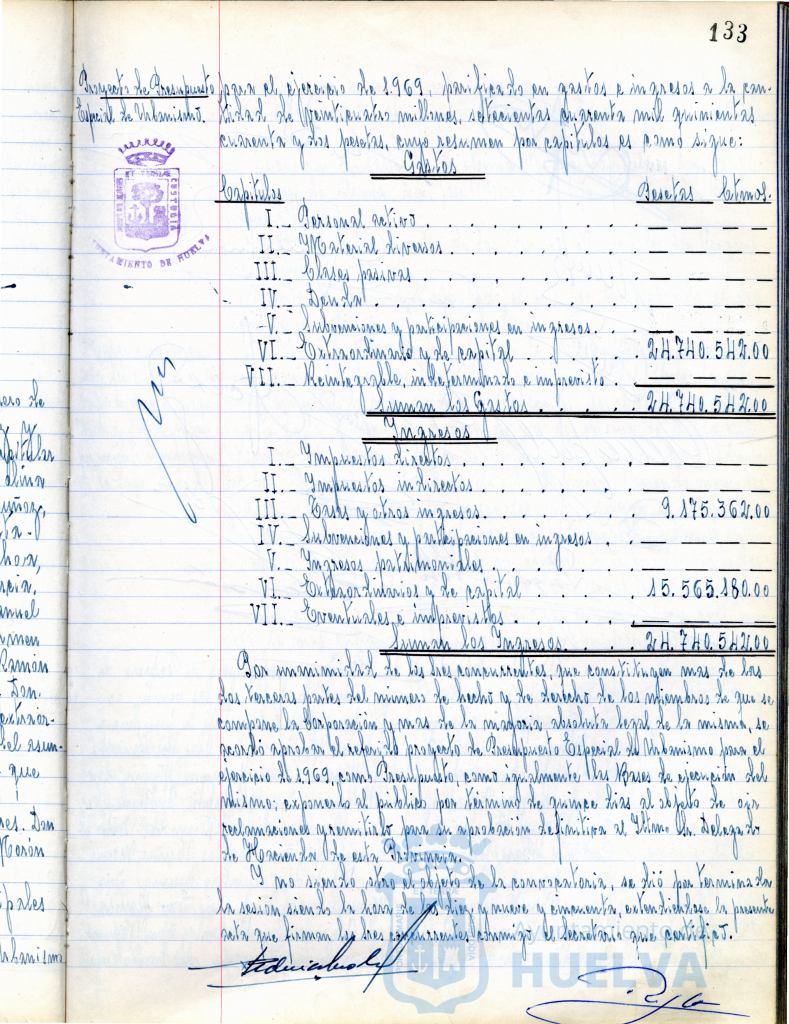 133
Proyecto de Presupuesto
Especial de Urbanismo.
para el ejercicio de 1.969, parificado en gastos e ingresos a la can-
tidad de veinticuatro millones, setecientas cuarenta mil quinientas
cuarenta y dos pesetas, cuyo resumen por capitulos es como sigue:
Gastos
Capítulos Pesetas Ctmos.
I._ Personal activo . . . . . . . . . — — — —
II._ Material y diversos . . . . . . . . — — — —
III._ Clases pasivas . . . . . . . . . — — — —
IV._ Deuda . . . . . . . . . . — — — —
V._ Subvenciones y participaciones en ingresos . . . — — — —
VI._ Extraordinario y de capital . . . . . . 24.740.542.00
VII._ Reintegrable, indeterminado e imprevisto . . — — — —
Suman los Gastos . . . . . 24.740.542.00
Ingresos
I._ Impuestos directos . . . . . . . . — — — —
II._ Impuestos indirectos . . . . . . . — — — —
III._ Tasas y otros ingresos . . . . . . . 9.175.362.00
IV._ Subvenciones y participaciones en ingresos . . . — — — —
V._ Ingresos patrimoniales . . . . . . . — — — —
VI._ Extraordinarios y de capital . . . . . 15.565.180.00
VII._ Eventuales e imprevistos . . . . . . — — — —
Suman los Ingresos . . . . 24.740.542.00
Por unanimidad de los Sres concurrentes, que constituyen mas de las
dos terceras partes del número de hecho y de derecho de los miembros de que se
compone la Corporación y mas de la mayoria absoluta legal de la misma, se
acordó aprobar el referido proyecto de Presupuesto Especial de Urbanismo para el
ejercicio de 1969, como Presupuesto, como igualmente las Bases de ejecución del
mismo; exponerlo al público por termino de quince dias al objeto de oir
reclamaciones y remitirlo para su aprobación definitiva al Iltmo Sr. Delegado
de Hacienda de esta Provincia.
Y no siendo otro el objeto de la convocatoria, se dió por terminada
la sesión siendo la hora de las diez y nueve y cincuenta, extendiendose la presente
acta que firman los Sres concurrentes conmigo el Secretario que certifico.
AYUNTAMIENTO DE HUELVA
Ayuntamiento
HUELVA
ero de
apitular
uñoz,
ta-
hoa,
rcia,
anuel
rmen
Ramón
Don
extraor-
del asun-
que
res. Don
Morón
ipales
Urbanismo